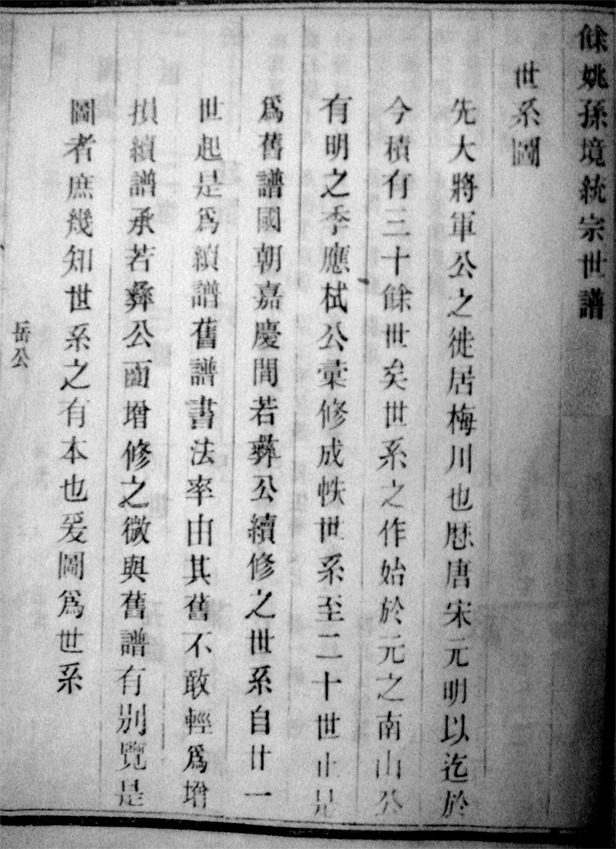 餘姚孫境統宗世譜
世系圖
先大將軍公之徙居梅川也歷唐宋元明以迄於
今積有三十餘世矣世系之作始於元之南山公
有明之季應栻公彙修成帙世系至二十世止是
爲舊譜國朝嘉慶間若彝公續修之世系自廿一
世起是爲續譜舊譜書法率由其舊不敢輕爲增
損續譜承若彝公而增修之微與舊譜有別覽是
圖者庶幾知世系之有本也爰圖爲世系
岳公